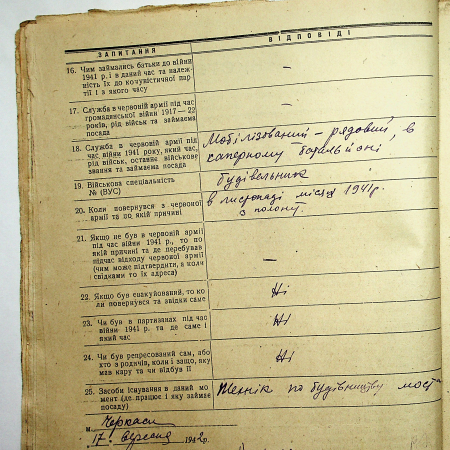 ЗАПИТАННЯ
ВІДПОВІДІ
16. Чим займались батьки до війни
1941 р. і в даний час та належ-
ність їх до комуністичної пар-
тії і з якого часу
—
17. Служба в червоній армії під час
громадянської війни 1917—22
років, рід військ та займаєма
посада
—
18. Служба в червоній армії під
час війни 1941 року, який час,
рід військ, останнє військове
звання та займаєма посада
Мобілізований – рядовий, в
саперному батальйоні
19. Військова спеціальність
№ (ВУС)
будівельник
20. Коли повернувся з червоної
армії та по якій причині
в листопаді місяці 1941 р.
з полону.
21. Якщо не був в червоній армії
під час війни 1941 р., то по
якій причині та де перебував
підчас відходу червоної армії
(чим може підтвердити, а коли
свідками то їх адреса)
—
22. Якщо був евакуйований, то ко-
ли повернувся та звідки саме
Ні
23. Чи був в партизанах під час
війни 1941 р. та де саме і
який час
Ні
24. Чи був репресований сам, або
хто з родичів, коли і защо, яку
мав кару та чи відбув її
Ні
25. Засоби існування в даний мо-
мент (де працює і яку займає
посаду)
Технік по будівництву мост
м. Черкаси
17 вересня 1942 р.